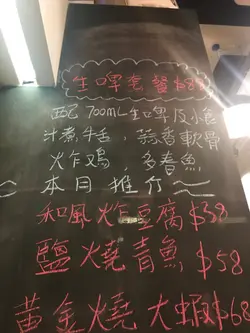 生啤套餐$88
配 700mL生啤及小食
汁煮牛舌，蒜香軟骨
火乍鸡，多春魚
本日推介
和風炸豆腐$58
鹽燒青魚$58
黃金燒大蝦$68